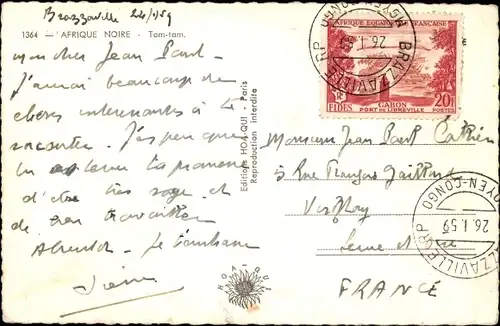 Brazzaville 24/1/59
1364 - AFRIQUE NOIRE - Tam-tam.
mon cher Jean Paul -
J'aurai beaucoup de
choses interessantes à te
raconter. J'espère que
tu as tenu ta promesse
d'être très sage et
de bien travailler
A bientôt. Je t'embrasse
Editions HOA-QUI - Paris
Reproduction interdite
HOA-QUI
AFRIQUE EQUATORIALE FRANÇAISE
RF
FIDES
GABON
PORT DE LIBREVILLE
20F
POSTES
BRAZZAVILLE R.P
MOYEN-CONGO
26.1.59
Monsieur Jean Paul
5 Rue François Gaillard
Seine et Oise
FRANCE
BRAZZAVILLE R.P
MOYEN-CONGO
26.1.59